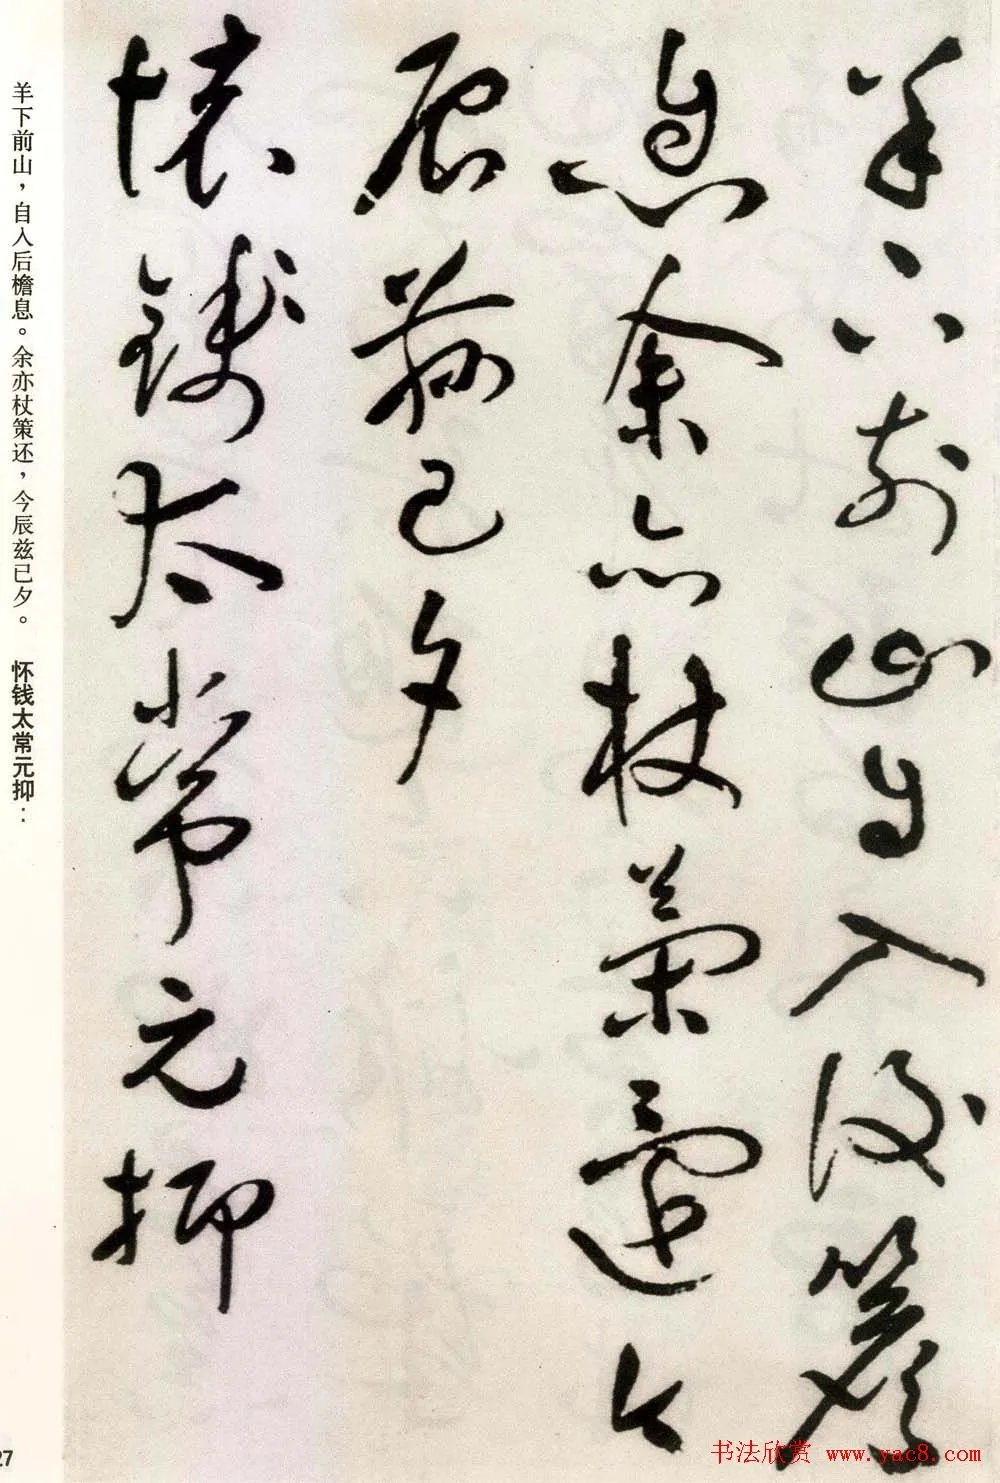 羊下前山自入後簷
息余亦杖策還今
辰茲已夕
懷錢太常元抑
羊下前山，自入后檐息。余亦杖策还，今辰兹已夕。 怀钱太常元抑：
27
书法欣赏 www.yac8.com